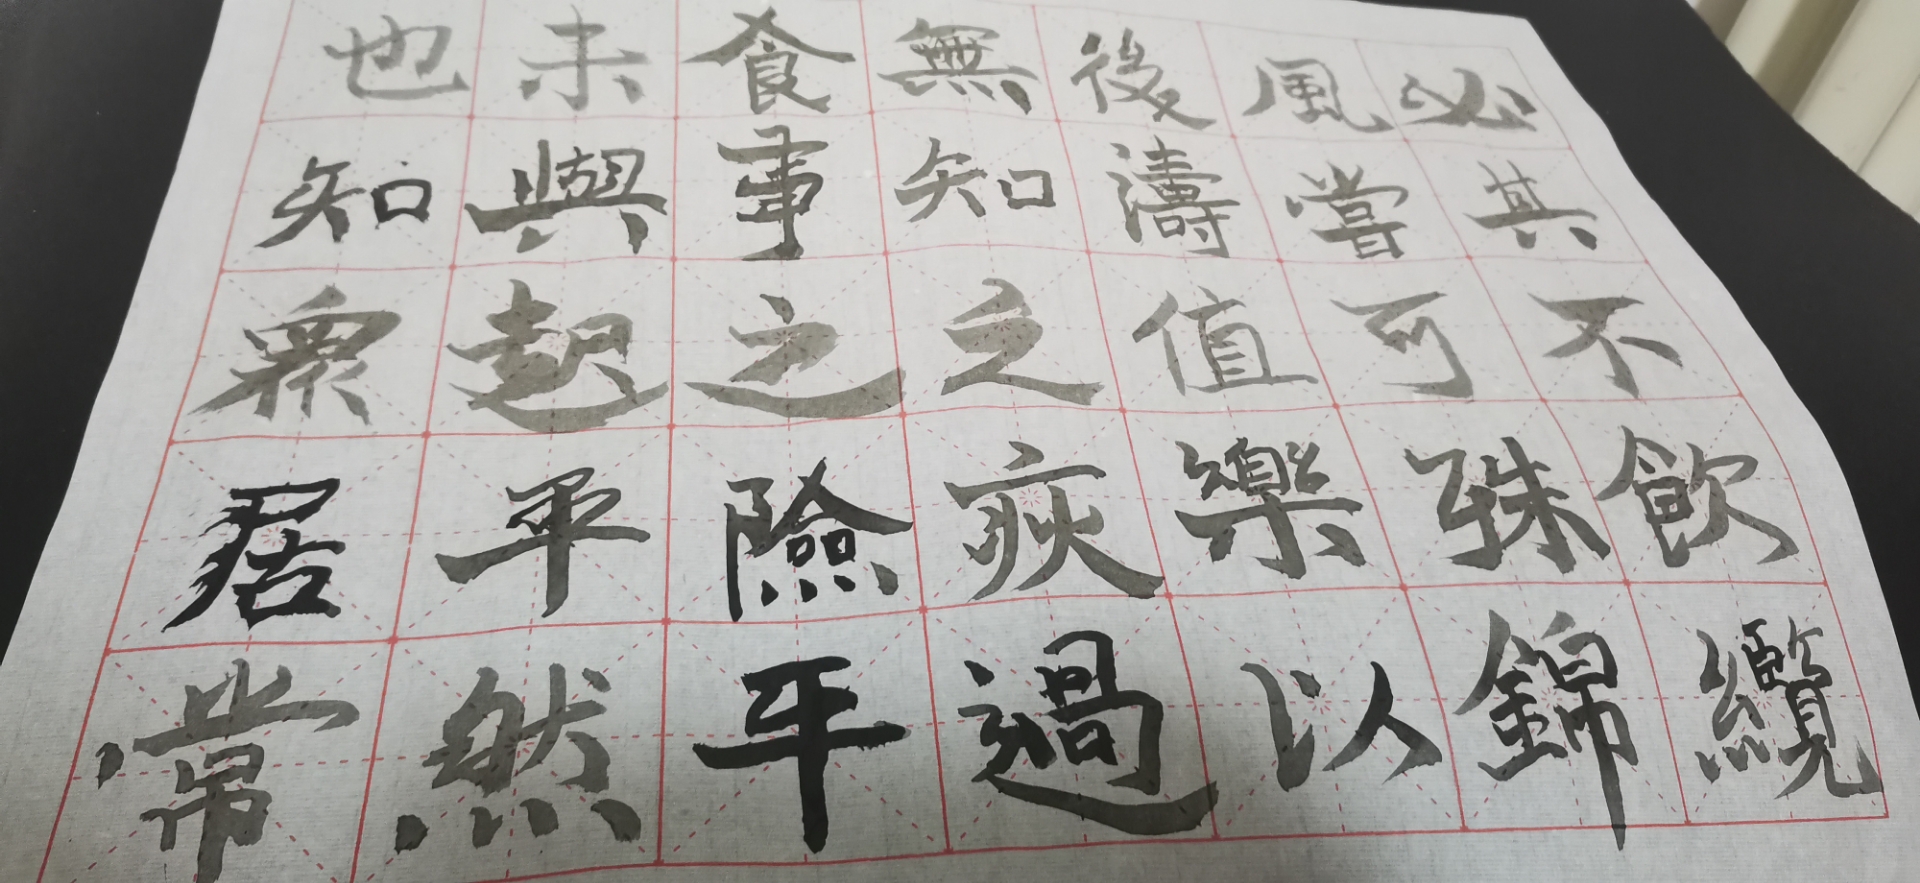 必其不飲纜
風嘗可殊錦
後濤值樂以
無知之疢過
食事之險平
未與起平然
也知眾居常